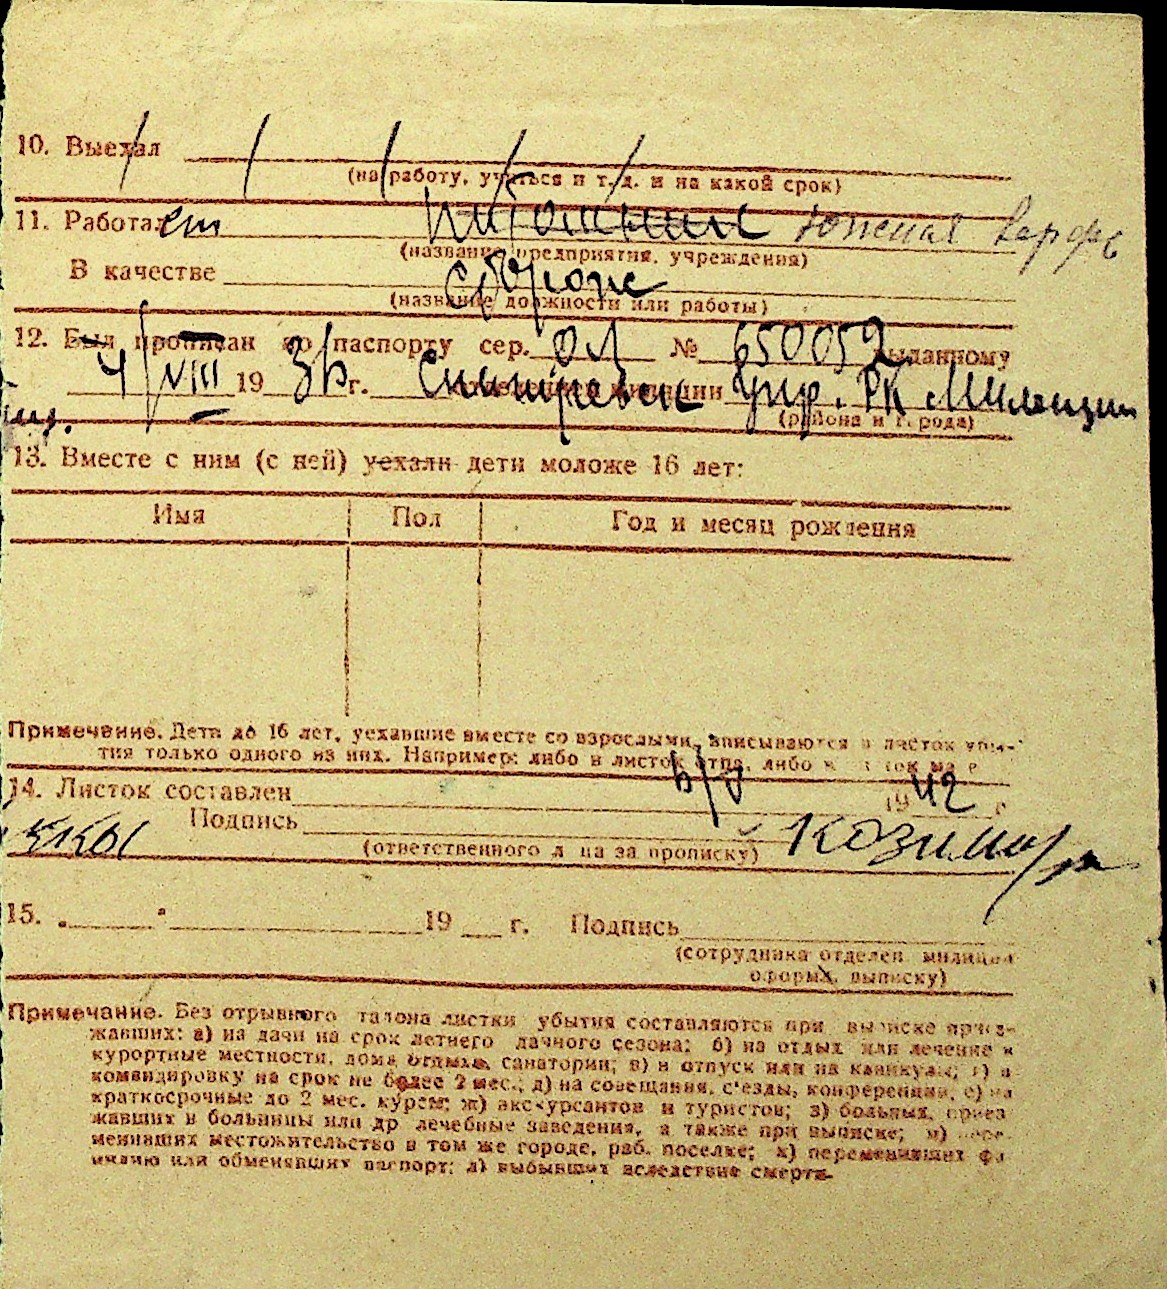 10. Выехал
(на работу, учиться и т. д. и на какой срок)
11. Работает Южная верфь
(название предприятия, учреждения)
В качестве
(название должности или работы)
12. Был прописан по паспорту сер. ОЛ № 650052 выданному
4/VIII 19 36 г. отделением милиции Упр. РК Милиции
(района и города)
13. Вместе с ним (с ней) уехали дети моложе 16 лет:
Имя Пол Год и месяц рождения
Примечание. Дети до 16 лет, уехавшие вместе со взрослыми, вписываются в листок убы-
тия только одного из них. Например: либо в листок отца, либо в листок
14. Листок составлен 1942 г
Подпись
(ответственного лица за прописку)
15. „ " 19 г. Подпись
(сотрудника отделен. милиции
оформ. выписку)
Примечание. Без отрывного талона листки убытия составляются при выписке приез-
жавших: а) на дачи на срок летнего дачного сезона; б) на отдых или лечение в
курортные местности, дома отдыха, санатории; в) в отпуск или на каникулы; г) в
командировку на срок не более 2 мес.; д) на совещания, с'езды, конференции; е) на
краткосрочные до 2 мес. курсы; ж) экскурсантов и туристов; з) больных, приез
жавших в больницы или др лечебные заведения, а также при выписке; и) пере-
менивших местожительство в том же городе, раб. поселке; к) переменивших фа
милию или обменявших паспорт; л) выбывших вследствие смерти.